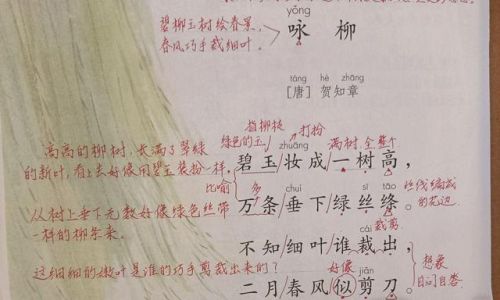 碧柳玉树绘春景,
春风巧手裁细叶。
yǒng
咏 柳
táng hè zhāng
[唐] 贺知章
指柳枝
绿色的玉
打扮
满树,全,整个
高高的柳树,长满了翠绿
的新叶,看上去好像用碧玉装扮一样,
zhuāng
碧玉/妆成/一树高,
比喻
多
chuí sī tāo
丝线编成
的花边.
从树上垂下无数好像绿色丝带
一样的柳条来.
万条/垂下/绿丝绦。
cái
裁剪.
不知/细叶/谁裁出,
这细细的嫩叶是谁的巧手剪裁出来的?
好像
jiǎn
想象
自问自答.
二月/春风/似剪刀。